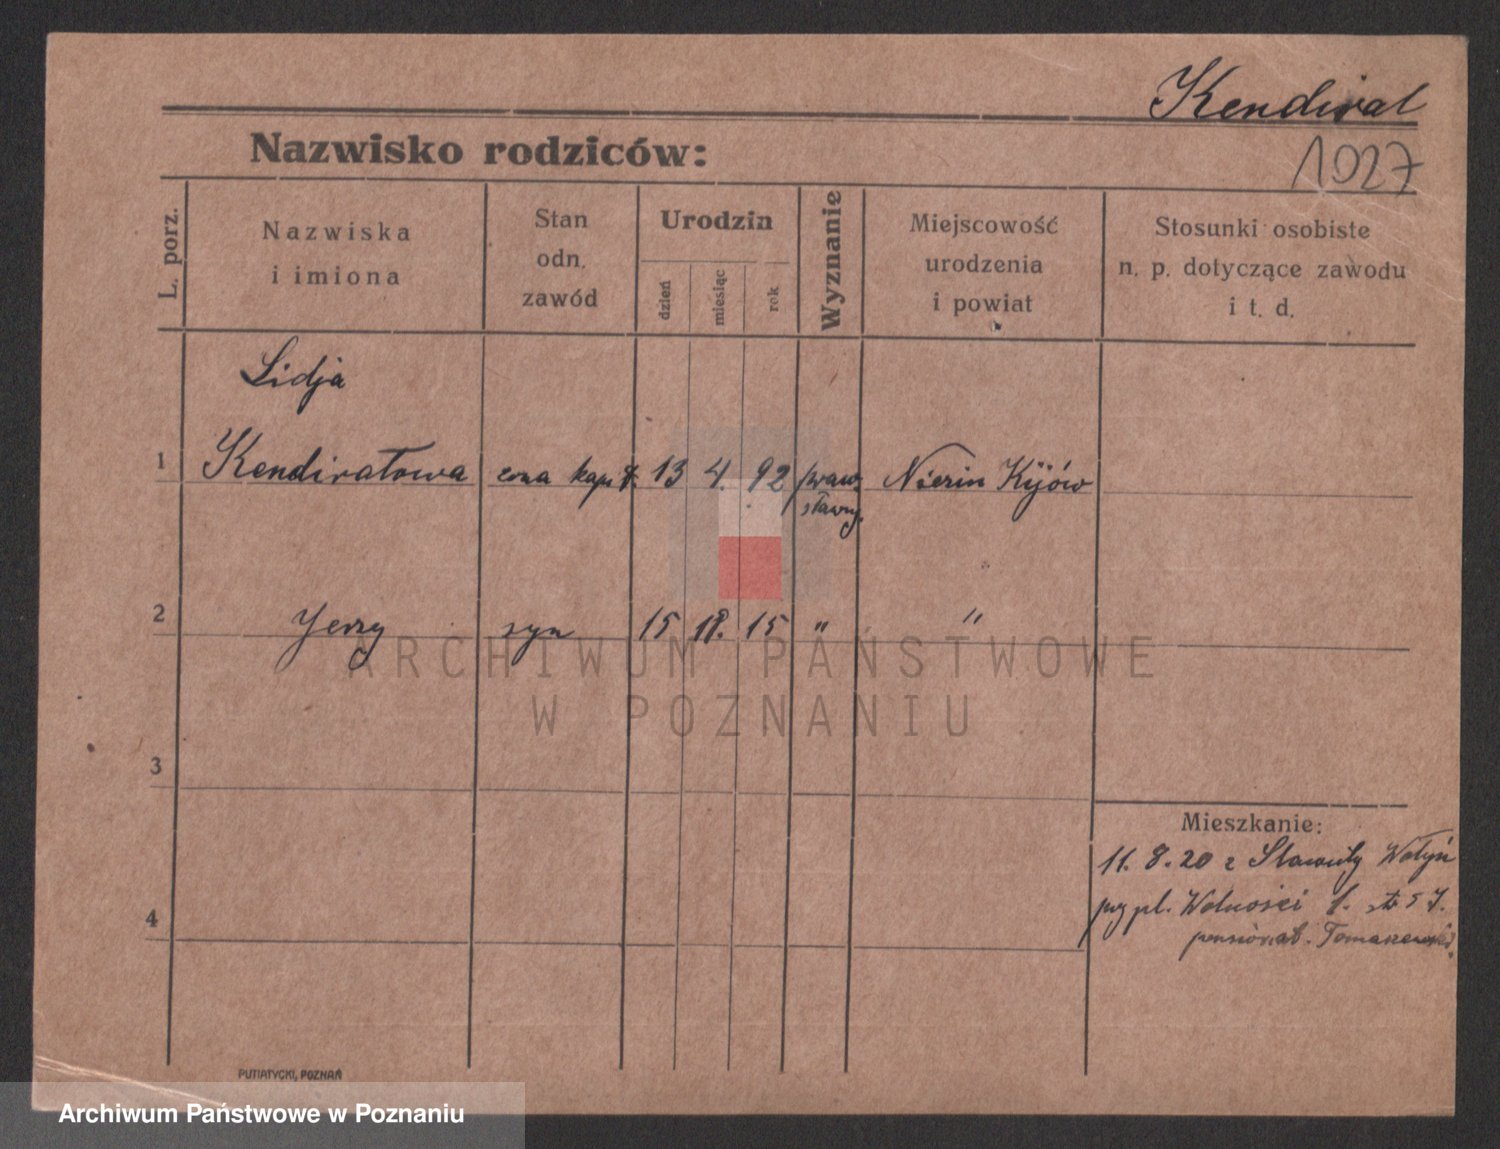 Kendirat
1027
Nazwisko rodziców:
L. porz.
Nazwiska
i imiona
Stan
odn.
zawód
Urodzin
dzień
miesiąc
rok
Wyznanie
Miejscowość
urodzenia
i powiat
Stosunki osobiste
n. p. dotyczące zawodu
i t. d.
Lidja
1 Kendiratowa żona kap. 13 4. 92 praw. Nieżin Kijów
sławny.
2 Jerzy syn 15 15 " "
3
4
Mieszkanie:
11. 8. 20 z Sławuty Wołyń
pl. Wolności
pensionat. Tomaszewski
PUTIATYCKI, POZNAŃ
ARCHIWUM PAŃSTWOWE
W POZNANIU
Archiwum Państwowe w Poznaniu